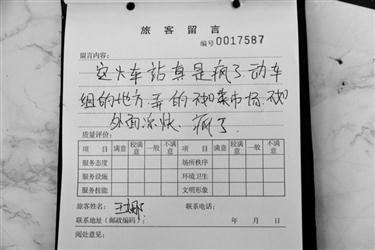 旅客留言
编号0017587
留言内容：
这火车站真是疯了动车
组的地方.弄的 菜市场.
外面凉快.疯了
质量评价：
项目 满意 较满意 一般 不满意 项目 满意 较满意 一般 不满意
服务态度 场所秩序
服务设施 环境卫生
服务技能 文明形象
旅客姓名： 联系电话：
联系地址（邮政编码）： 年 月 日
阅处意见：